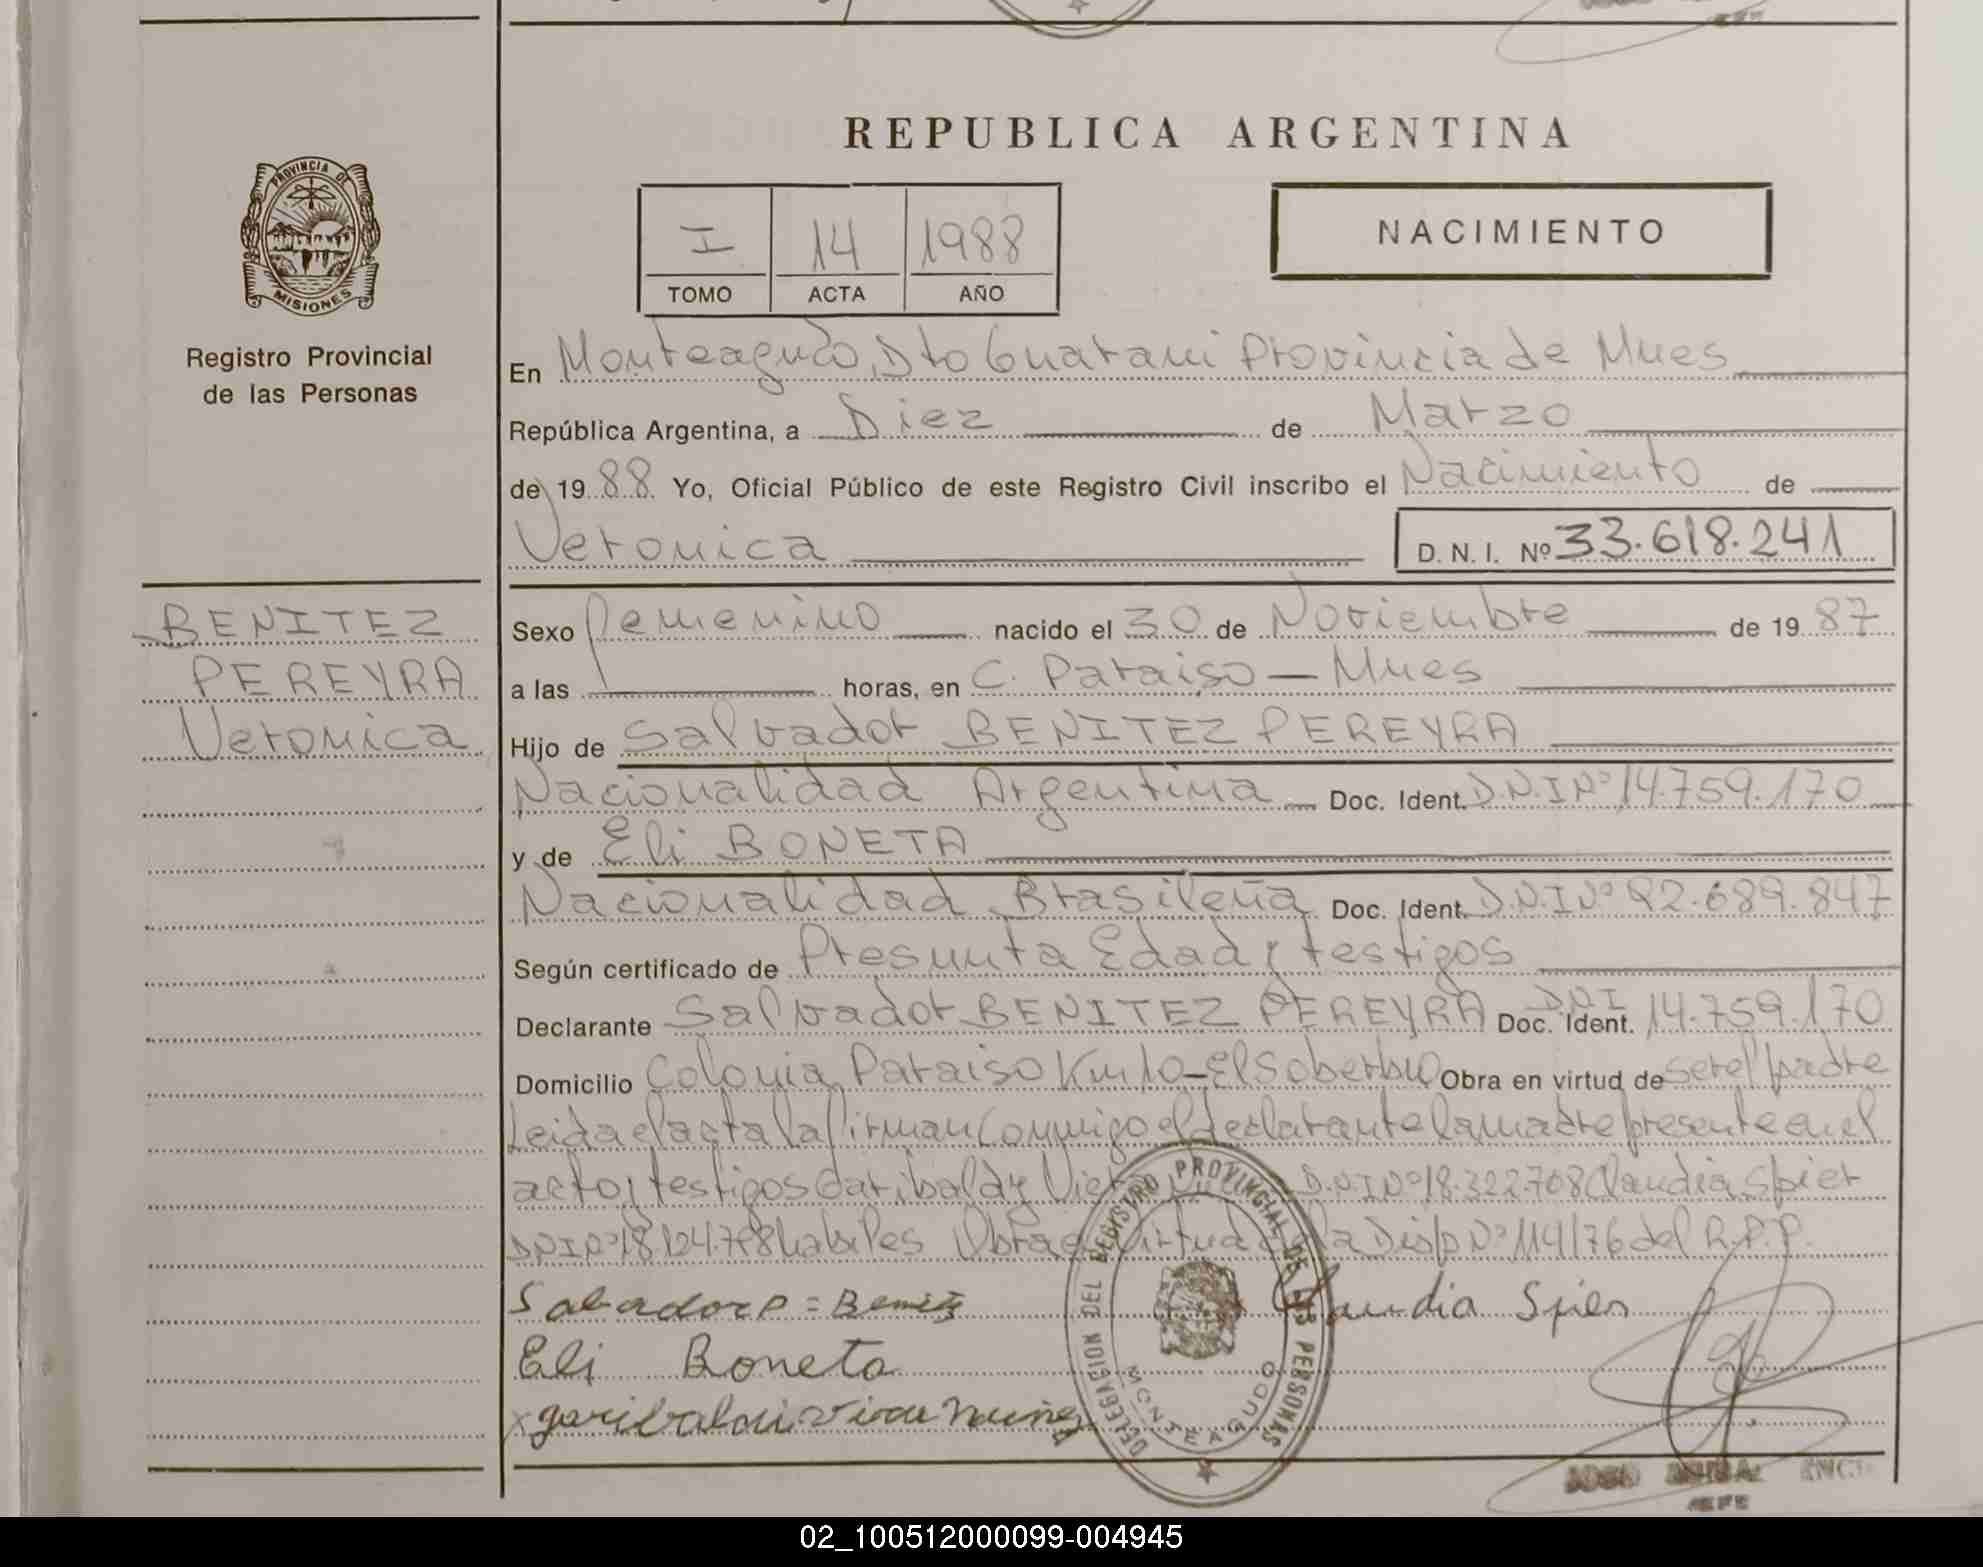 REPUBLICA ARGENTINA
PROVINCIA DE
MISIONES
Registro Provincial
de las Personas
I 14 1988
TOMO ACTA AÑO
NACIMIENTO
En Monteagudo, Dto Guarani Provincia de Mnes
República Argentina, a Diez de Marzo
de 1988. Yo, Oficial Público de este Registro Civil inscribo el Nacimiento de
Veronica D. N. I. Nº 33.618.241
BENITEZ
PEREYRA
Veronica
Sexo femenino nacido el 30 de Noviembre de 1987
a las horas, en C. Paraiso — Mnes
Hijo de Salvador BENITEZ PEREYRA
Nacionalidad Argentina Doc. Ident. D.N.I Nº 14.759.170
y de Eli BONETA
Nacionalidad Brasileña Doc. Ident. D.N.I Nº 92.689.847
Según certificado de Presunta Edad y testigos
Declarante Salvador BENITEZ PEREYRA Doc. Ident. DNI 14.759.170
Domicilio Colonia Paraiso Km 10 - El Soberbio Obra en virtud de ser el padre
Leida el acta la firman Conmigo el declarante la madre presente en el
acto y testigos Garibaldy D.N.I Nº 18.322.708 Claudia Spier
D.N.I Nº habiles Obra en virtud de la Disp Nº 114/76 del R.P.P.
Eli Boneta
Claudia Spier
DELEGACION DEL REGISTRO PROVINCIAL DE LAS PERSONAS
MONTEAGUDO
JEFE
02_100512000099-004945